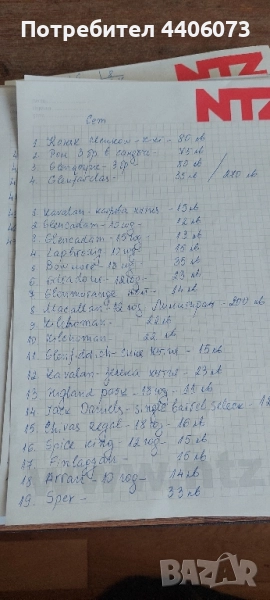 Потребител 4406073
NTZ
NTZ
Сет
1. Коняк - 80 лв
2. Рон 3 бр в сандък - 45 лв
3. 3 бр - 80 лв
4. Glenfarclas - 35 лв / лв
1 Kavalan - кафява кутия - 15 лв
2 Glencadam - 10 год - 12 лв
3 Glencadam - 15 год - 13 лв
4 Laphroaig - 10 год - 15 лв
5 Bowmore - год - 35 лв
6 год - 23 лв
7 Glenmorangie - 14 лв
8 Macallan - 12 год - 200 лв
9 Kilchoman - 22 лв
10 Kilchoman 22 лв
11 Glenfiddich - синя кутия - 15 лв
12 Kavalan - зелена кутия - 23 лв
13 Highland park - 18 год - 25 лв
14 Jack Daniels - single barrel select - 12
15. Chivas Regal - 18 год - 16 лв
16. Spice king 12 год - 15 лв
17. Finlaggan - 16 лв
18 Arran - 10 год - 14 лв
19. Spey - 33 лв
BAZAR
bg